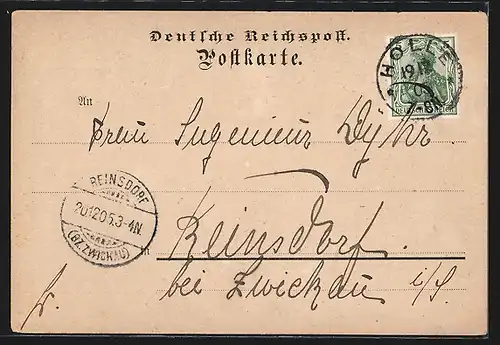 Deutsche Reichspost.
Postkarte.
HÖLLE
19 12
7-8N.
An
Frau Ingenieur Dyhr.
REINSDORF
20 12 05. 3-4N.
(BZ. ZWICKAU)
in
Reinsdorf.
bei Zwickau i/S.
Fr.